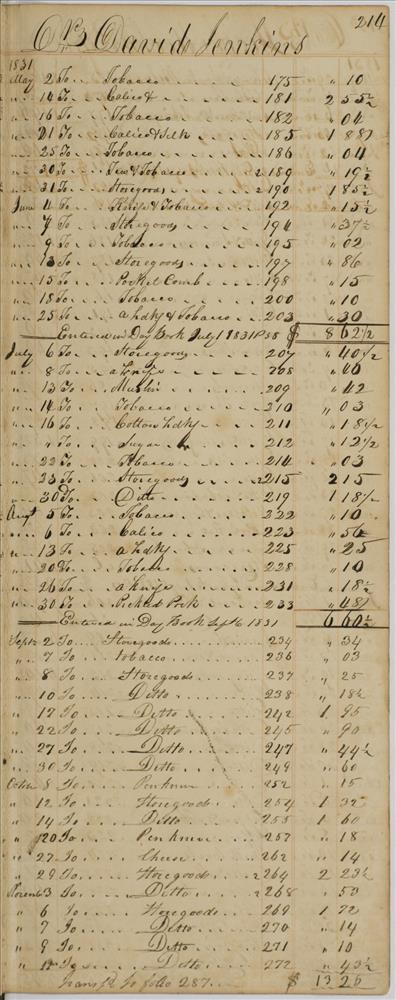 214
Dr David Jenkins
1831
May 2 To Tobacco 175 " 10
" 14 To Calico & 181 2 55½
" 16 To Tobacco 182 " 04
" 21 To Calico & Silk 185 1 88½
" 25 To Tobacco 186 " 04
" 30 To Tobacco 189 " 19½
" 31 To Storegoods 190 1 85½
June 4 To Knife & Tobacco 192 " 15½
" 7 To Storegoods 194 " 37½
" 9 To Tobacco 195 " 02
" 13 To Storegoods 197 " 86
" 15 To Pocket Comb 198 " 15
" 18 To Tobacco 200 " 10
" 25 To a hdkf & Tobacco 203 " 30
Entered in Day Book July 1 1831 P58 $ 8 62½
July 6 To Storegoods 207 " 40½
" 8 To a Knife 208 " 40
" 13 To Muslin 209 " 42
" 14 To Tobacco 210 " 03
" 16 To Cotton hdkf 211 " 18½
" " To Sugar 212 " 12½
" 22 To Tobacco 214 " 03
" 23 To Storegoods 215 2 15
" 30 To Ditto 219 1 18½
Augt 5 To Tobacco 222 " 10
" 6 To Calico 223 " 56
" 13 To a hdkf 225 " 25
" 20 To Tobacco 228 " 10
" 26 To a knife 231 " 18½
" 30 To Pickled Pork 233 " 48
Entered in Day Book Sept 6 1831 6 60½
Septr 2 To Storegoods 234 " 34
" 7 To tobacco 236 " 03
" 8 To Storegoods 237 " 25
" 10 To Ditto 238 " 18½
" 17 To Ditto 242 1 95
" 22 To Ditto 245 " 90
" 27 To Ditto 247 " 44½
" 30 To Ditto 249 " 60
Octobr 8 To Penknife 252 " 15
" 12 To Storegoods 254 1 32
" 14 To Ditto 255 1 60
" 20 To Pen knife 257 " 18
" 27 To Cheese 262 " 14
" 29 To Storegoods 264 2 23½
Novemb 3 To Ditto 268 " 53
" 6 To Storegoods 269 1 72
" 7 To Ditto 270 " 14
" 9 To Ditto 271 " 10
" 12 To Ditto 272 " 43½
Transfd to folio 287 $ 13 26